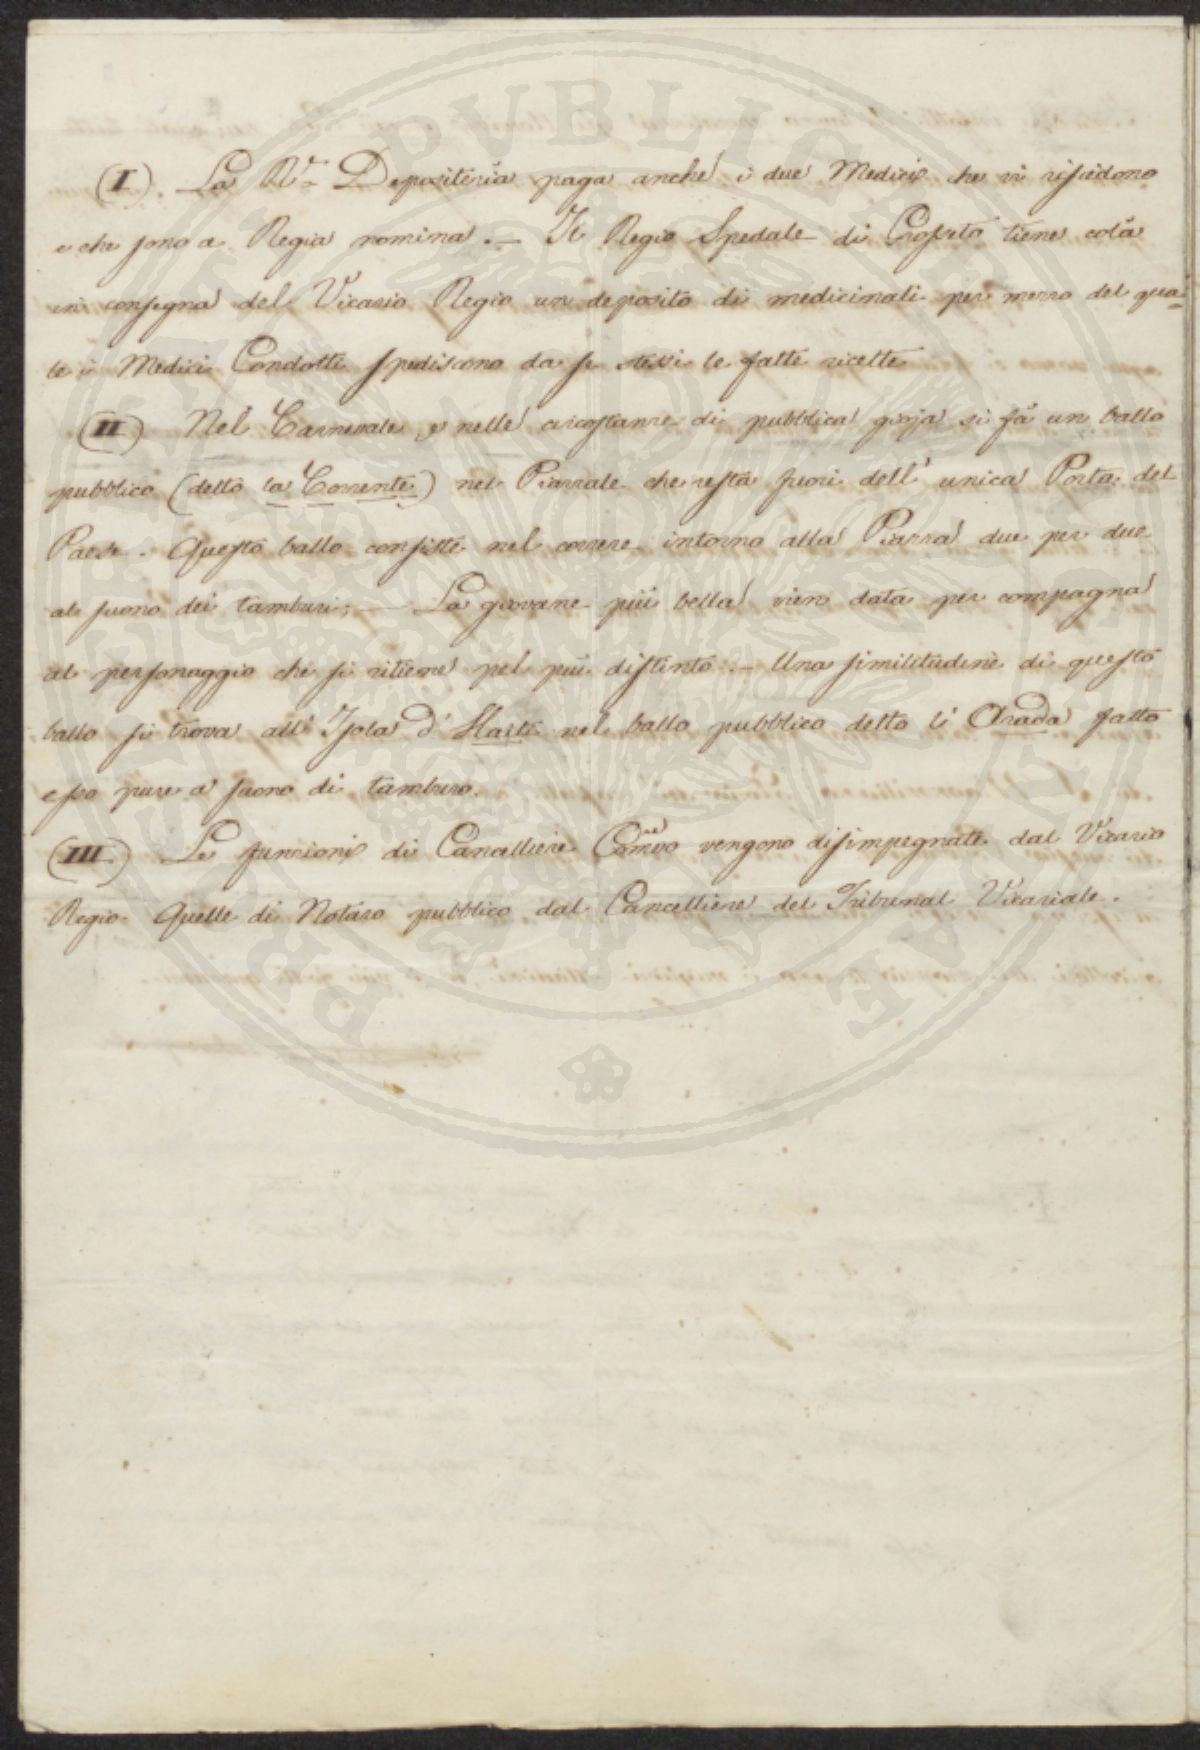 (I). La R.ª Depositeria paga anche i due Medici che vi risiedono
e che sono a Regia nomina. — Il Regio Spedale di Grosseto tiene colà
in consegna del Vicario Regio un deposito di medicinali per mezzo del qua=
le i Medici Condotti spediscono da se stessi le fatte ricette
(II) Nel Carnevale, e nelle circostanze di pubblica gioja si fà un ballo
pubblico (detto la Corrente) nel Piazzale che resta fuori dell' unica Porta del
Paese. Questo ballo consiste nel correre intorno alla Piazza due per due
al suono dei tamburi; — La giovane più bella vien data per compagna
al personaggio che si ritiene pel più distinto. — Una similitudine di questo
ballo si trova all' Isola d' Haiti nel ballo pubblico detto li Chada fatto
esso pure a suono di tamburo.
(III) Le funzioni di Cancelliere vengono disimpegnate dal Vicario
Regio. Quelle di Notaro pubblico dal Cancelliere del Tribunal Vicariale.
PVBLIC